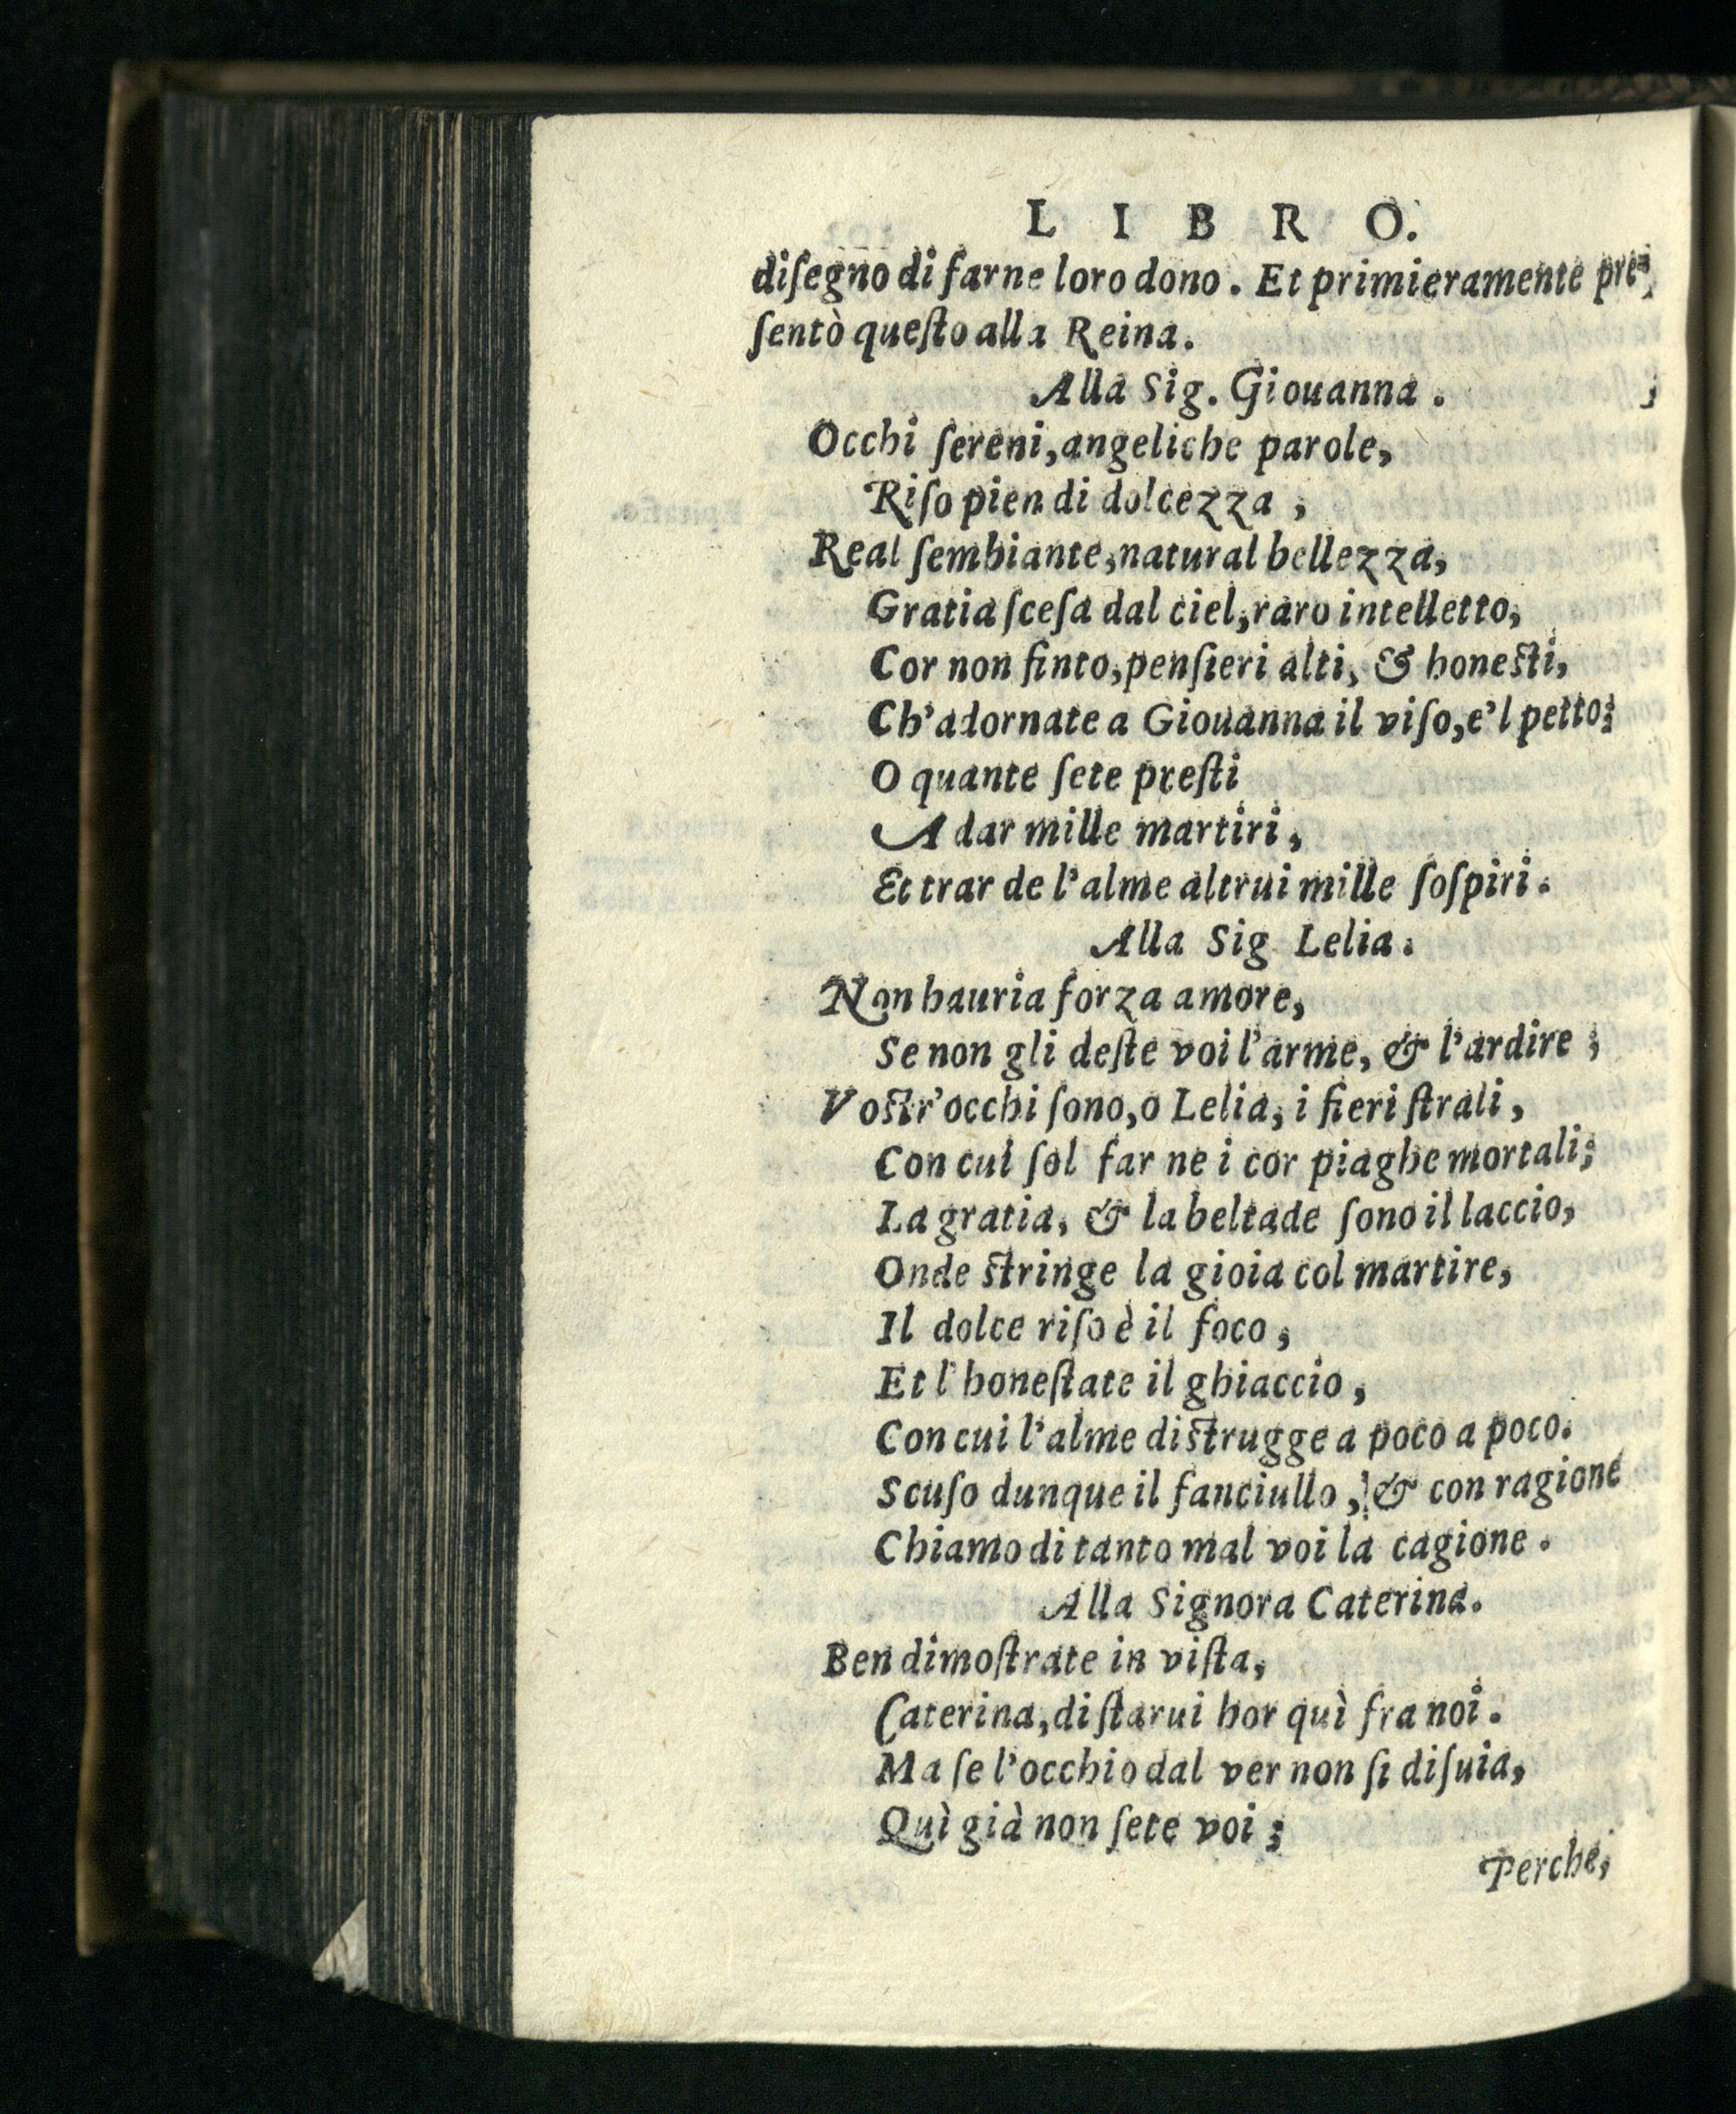 LIBRO.
diſegno di farne loro dono. Et primieramente pre-
ſentò queſto alla Reina.
Alla Sig. Giouanna.
Occhi ſereni, angeliche parole,
Riſo pien di dolcezza,
Real ſembiante, natural bellezza,
Gratia ſceſa dal ciel, raro intelletto,
Cor non finto, penſieri alti, & honeſti,
Ch'adornate a Giouanna il viſo, e'l petto;
O quante ſete preſti
A dar mille martiri,
Et trar de l'alme altrui mille ſoſpiri.
Alla Sig Lelia.
Non hauria forza amore,
Se non gli deſte voi l'arme, & l'ardire;
Voſtr'occhi ſono, o Lelia, i fieri ſtrali,
Con cui ſol far ne i cor piaghe mortali;
La gratia, & la beltade ſono il laccio,
Onde ſtringe la gioia col martire,
Il dolce riſo è il foco,
Et l'honeſtate il ghiaccio,
Con cui l'alme diſtrugge a poco a poco.
Scuſo dunque il fanciullo, & con ragione
Chiamo di tanto mal voi la cagione.
Alla Signora Caterina.
Ben dimoſtrate in viſta,
Caterina, di ſtarui hor quì fra noi.
Ma ſe l'occhio dal ver non ſi diſuia,
Quì già non ſete voi;
Perche,